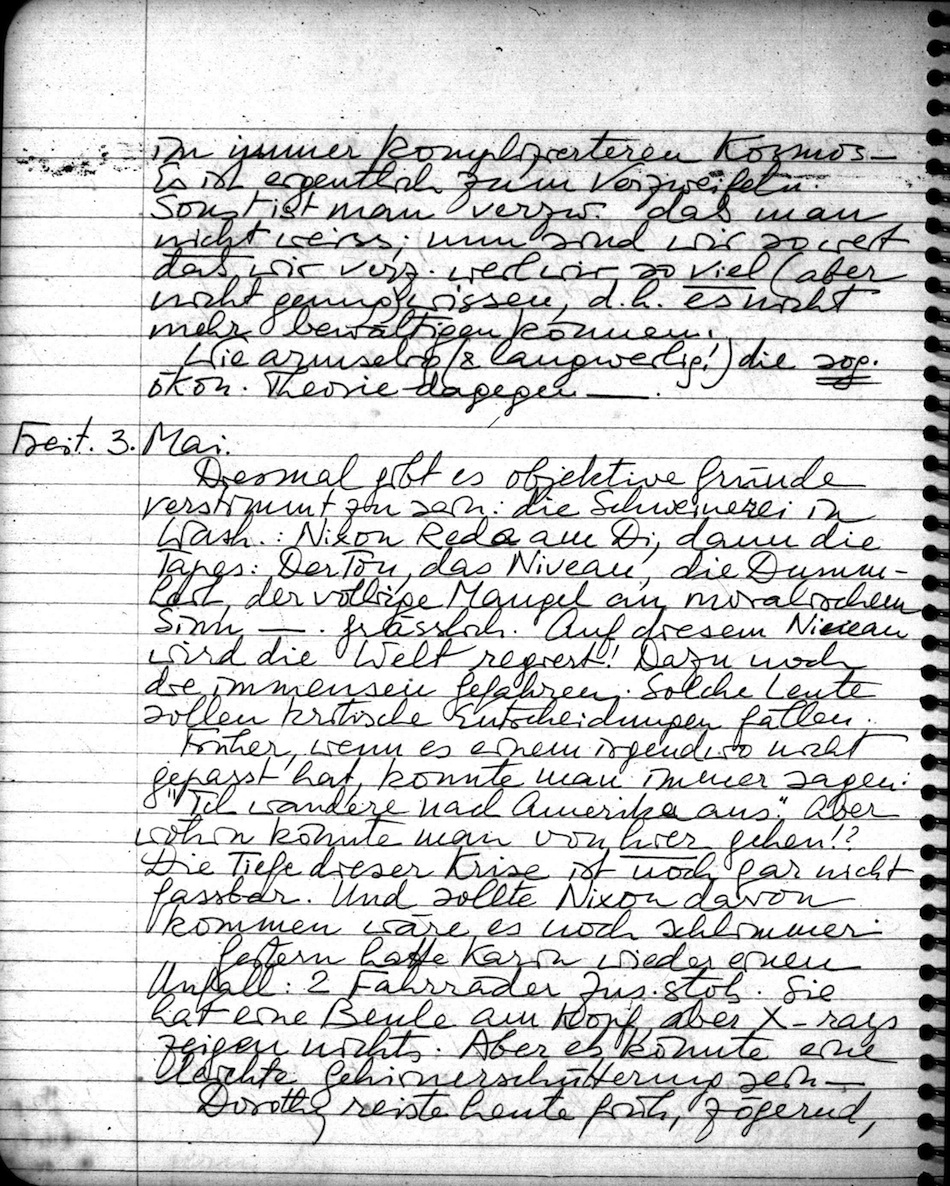 im immer komplizierteren Kozmos –
Es ist eigentlich zum Verzweifeln.
Sonst ist man verzw. daß man
nicht weiss; nun sind wir so weit
daß wir verz. weil wir so viel (aber
nicht genug) wissen, d.h. es nicht
mehr bewältigen können.
Wie armselig (& langweilig!) die sog.
ökon. Theorie dagegen —.
Freit. 3. Mai.
Diesmal gibt es objektive Gründe
verstimmt zu sein: die Schweinerei in
Wash.: Nixon Rede am Di, dann die
Tapes: Der Ton, das Niveau, die Dumm-
heit, der völlige Mangel an moralischem
Sinn —. Grässlich. Auf diesem Niveau
wird die Welt regiert! Dazu noch
die immensen Gefahren. Solche Leute
sollen kritische Entscheidungen fällen.
Früher, wenn es einem irgendwo nicht
gepasst hat, konnte man immer sagen:
"Ich wandere nach Amerika aus." Aber
wohin könnte man von hier gehen!?
Die Tiefe dieser Krise ist noch gar nicht
fassbar. Und sollte Nixon davon
kommen wäre es noch schlimmer.
Gestern hatte Karin wieder einen
Unfall: 2 Fahrräder zus.stoß. Sie
hat eine Beule am Kopf, aber X-rays
zeigen nichts. Aber es könnte eine
leichte Gehirnerschütterung sein –
Dorothy reiste heute früh, zögernd,